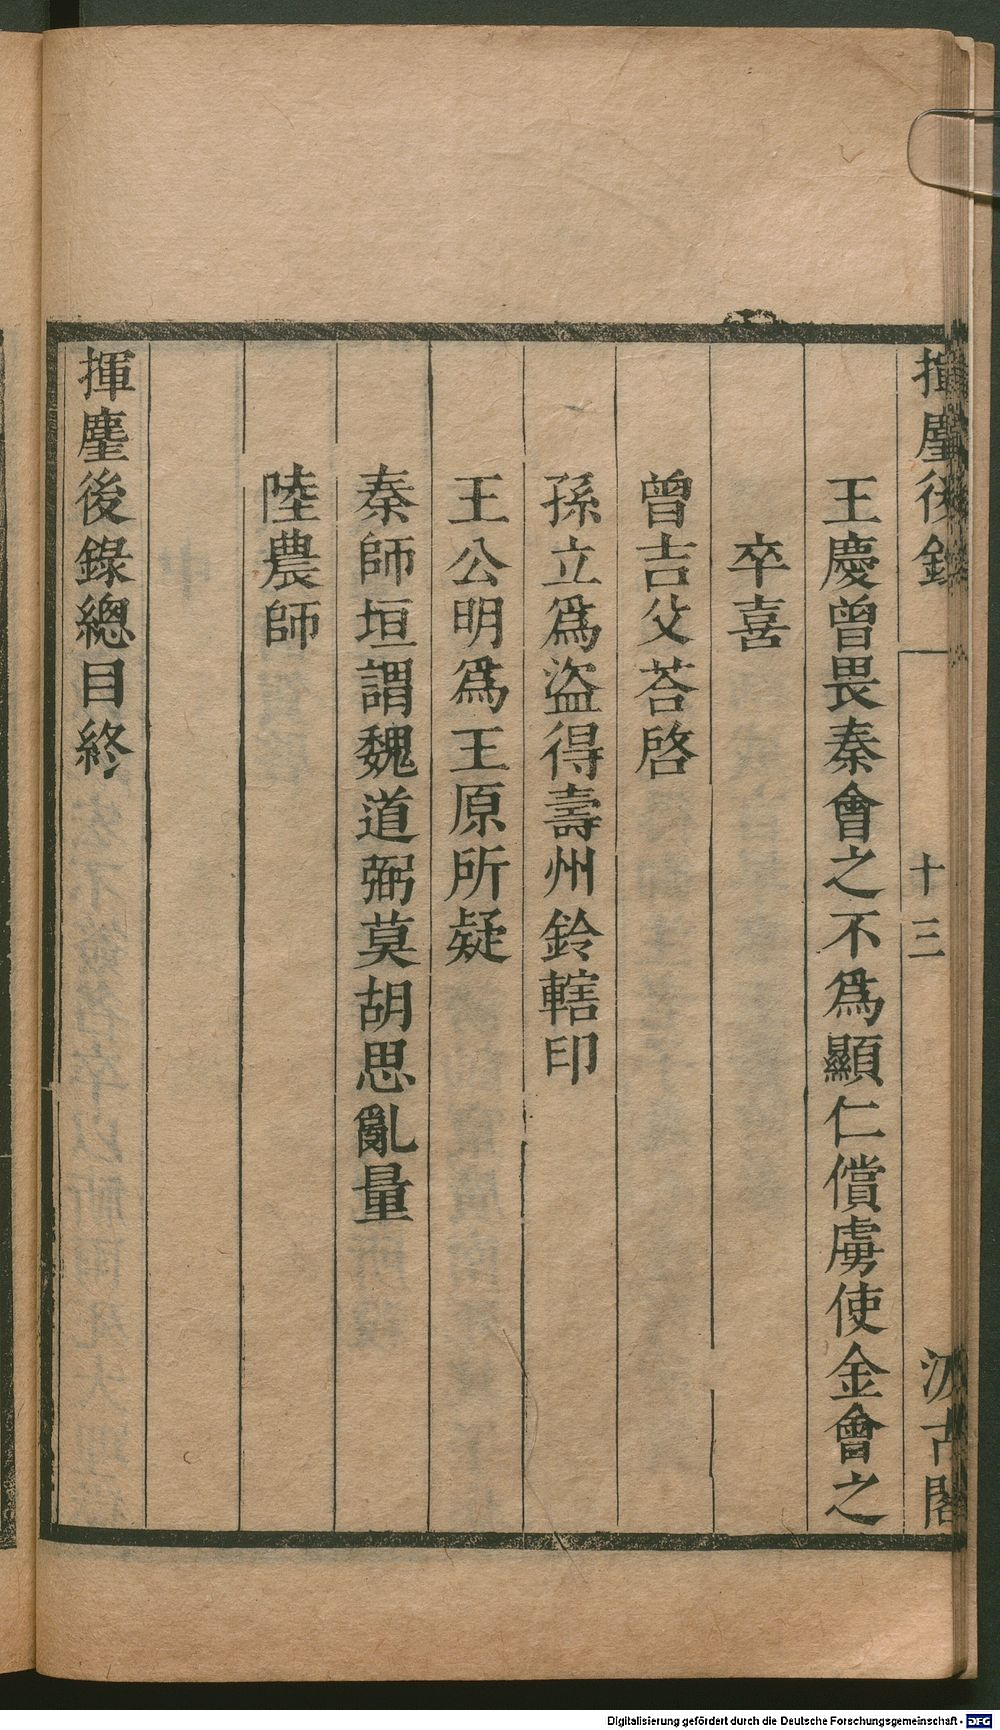 揮麈後錄
十三
汲古閣
王慶曾畏秦會之不為顯仁償虜使金會之
卒喜
曾吉父荅啓
孫立爲盜得壽州鈴轄印
王公明爲王原所疑
秦師垣謂魏道弼莫胡思亂量
陸農師
揮麈後錄總目終
Digitalisierung gefördert durch die Deutsche Forschungsgemeinschaft - DFG